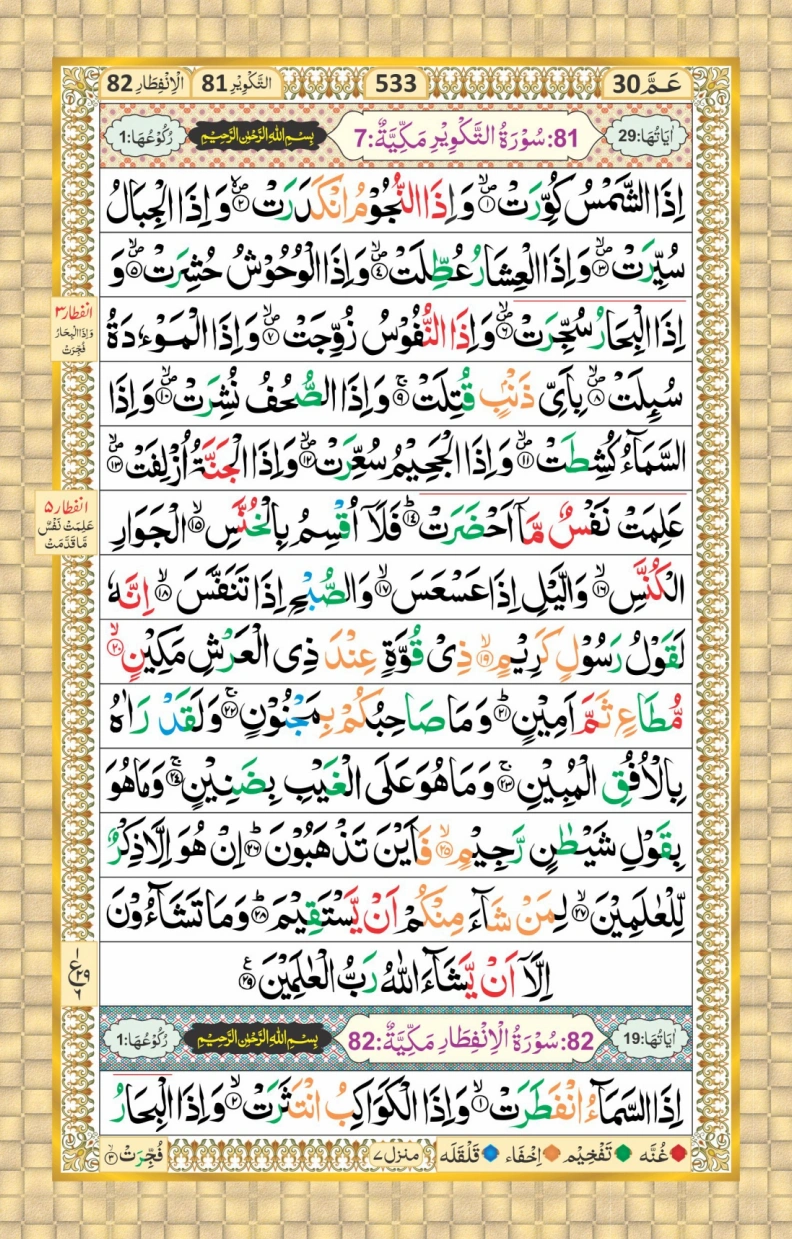 عَمَّ 30
533
اَلتَّكْوِيْر 81
اَلْاِنْفِطَار 82
اٰيَاتُهَا:29
81:سُوْرَةُ التَّكْوِيْرِ مَكِّيَّةٌ:7
بِسْمِ اللّٰهِ الرَّحْمٰنِ الرَّحِيْمِ
رُكُوْعُهَا:1
اِذَا الشَّمْسُ كُوِّرَتْ ۙ۱ وَ اِذَا النُّجُوْمُ انْكَدَرَتْ ۙ۲ وَ اِذَا الْجِبَالُ
سُيِّرَتْ ۙ۳ وَ اِذَا الْعِشَارُ عُطِّلَتْ ۙ۴ وَ اِذَا الْوُحُوْشُ حُشِرَتْ ۙ۵ وَ
اِذَا الْبِحَارُ سُجِّرَتْ ۙ۶ وَ اِذَا النُّفُوْسُ زُوِّجَتْ ۙ۷ وَ اِذَا الْمَوْءٗدَةُ
سُىِٕلَتْ ۙ۸ بِاَىِّ ذَنْۢبٍ قُتِلَتْ ۚ۹ وَ اِذَا الصُّحُفُ نُشِرَتْ ۙ۱۰ وَ اِذَا
السَّمَآءُ كُشِطَتْ ۙ۱۱ وَ اِذَا الْجَحِيْمُ سُعِّرَتْ ۙ۱۲ وَ اِذَا الْجَنَّةُ اُزْلِفَتْ ۙ۱۳
عَلِمَتْ نَفْسٌ مَّاۤ اَحْضَرَتْ ؕ۱۴ فَلَاۤ اُقْسِمُ بِالْخُنَّسِ ۙ۱۵ الْجَوَارِ
الْكُنَّسِ ۙ۱۶ وَ الَّيْلِ اِذَا عَسْعَسَ ۙ۱۷ وَ الصُّبْحِ اِذَا تَنَفَّسَ ۙ۱۸ اِنَّهٗ
لَقَوْلُ رَسُوْلٍ كَرِيْمٍ ۙ۱۹ ذِىْ قُوَّةٍ عِنْدَ ذِى الْعَرْشِ مَكِيْنٍ ۙ۲۰
مُّطَاعٍ ثَمَّ اَمِيْنٍ ؕ۲۱ وَ مَا صَاحِبُكُمْ بِمَجْنُوْنٍ ۚ۲۲ وَ لَقَدْ رَاٰهُ
بِالْاُفُقِ الْمُبِيْنِ ۚ۲۳ وَ مَا هُوَ عَلَى الْغَيْبِ بِضَنِيْنٍ ۚ۲۴ وَ مَا هُوَ
بِقَوْلِ شَيْطٰنٍ رَّجِيْمٍ ۙ۲۵ فَاَيْنَ تَذْهَبُوْنَ ؕ۲۶ اِنْ هُوَ اِلَّا ذِكْرٌ
لِّلْعٰلَمِيْنَ ۙ۲۷ لِمَنْ شَآءَ مِنْكُمْ اَنْ يَّسْتَقِيْمَ ؕ۲۸ وَ مَا تَشَآءُوْنَ
اِلَّاۤ اَنْ يَّشَآءَ اللّٰهُ رَبُّ الْعٰلَمِيْنَ ۲۹
انفطار ۳
وَاِذَا الْبِحَارُ
فُجِّرَتْ
انفطار ۵
عَلِمَتْ نَفْسٌ
مَّا قَدَّمَتْ
۱
ع ۲۹
۶
اٰيَاتُهَا:19
82:سُوْرَةُ الْاِنْفِطَارِ مَكِّيَّةٌ:82
بِسْمِ اللّٰهِ الرَّحْمٰنِ الرَّحِيْمِ
رُكُوْعُهَا:1
اِذَا السَّمَآءُ انْفَطَرَتْ ۙ۱ وَ اِذَا الْكَوَاكِبُ انْتَثَرَتْ ۙ۲ وَ اِذَا الْبِحَارُ
غُنَّه
تَفْخِيْم
اِخْفَاء
قَلْقَلَه
منزل ۷
فُجِّرَتْ ۙ۳